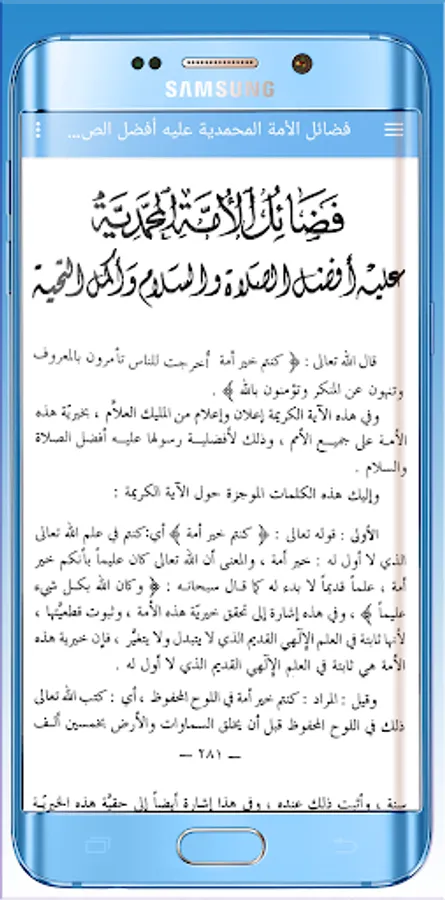 SAMSUNG
فضائل الأمة المحمدية عليه أفضل الص...
فَضَائِلُ الأُمَّةِ المُحَمَّدِيَّةِ
عليه أفضل الصلاة والسلام وأكمل التحية
قال الله تعالى : ﴿ كنتم خير أمة أخرجت للناس تأمرون بالمعروف
وتنهون عن المنكر وتؤمنون بالله ﴾ .
وفي هذه الآية الكريمة إعلان وإعلام من المليك العلاَّم ، بخيريّة هذه
الأمة على جميع الأمم ، وذلك لأفضلية رسولها عليه أفضل الصلاة
والسلام .
وإليك هذه الكلمات الموجزة حول الآية الكريمة :
الأولى : قوله تعالى : ﴿ كنتم خير أمة ﴾ أي:كنتم في علم الله تعالى
الذي لا أول له : خير أمة ، والمعنى أن الله تعالى كان عليماً بأنكم خير
أمة ، علماً قديماً لا بدء له كما قال سبحانه : ﴿ وكان الله بكل شيء
عليماً ﴾ ، وفي هذه إشارة إلى تحقق خيريّة هذه الأمة ، وثبوت قطعيَّتها ،
لأنها ثابتة في العلم الإلٓهي القديم الذي لا يتبدل ولا يتغيَّر ، فإن خيرية هذه
الأمة هي ثابتة في العلم الإلٓهي القديم الذي لا أول له .
وقيل : المراد : كنتم خير أمة في اللوح المحفوظ ، أي : كتب الله تعالى
ذلك في اللوح المحفوظ قبل أن يخلق السماوات والأرض بخمسين ألف
— ٢٨١ —
سنة ، وأثبت ذلك عنده ، وفي هذا إشارة أيضاً إلى حقيَّة هذه الخيريّة